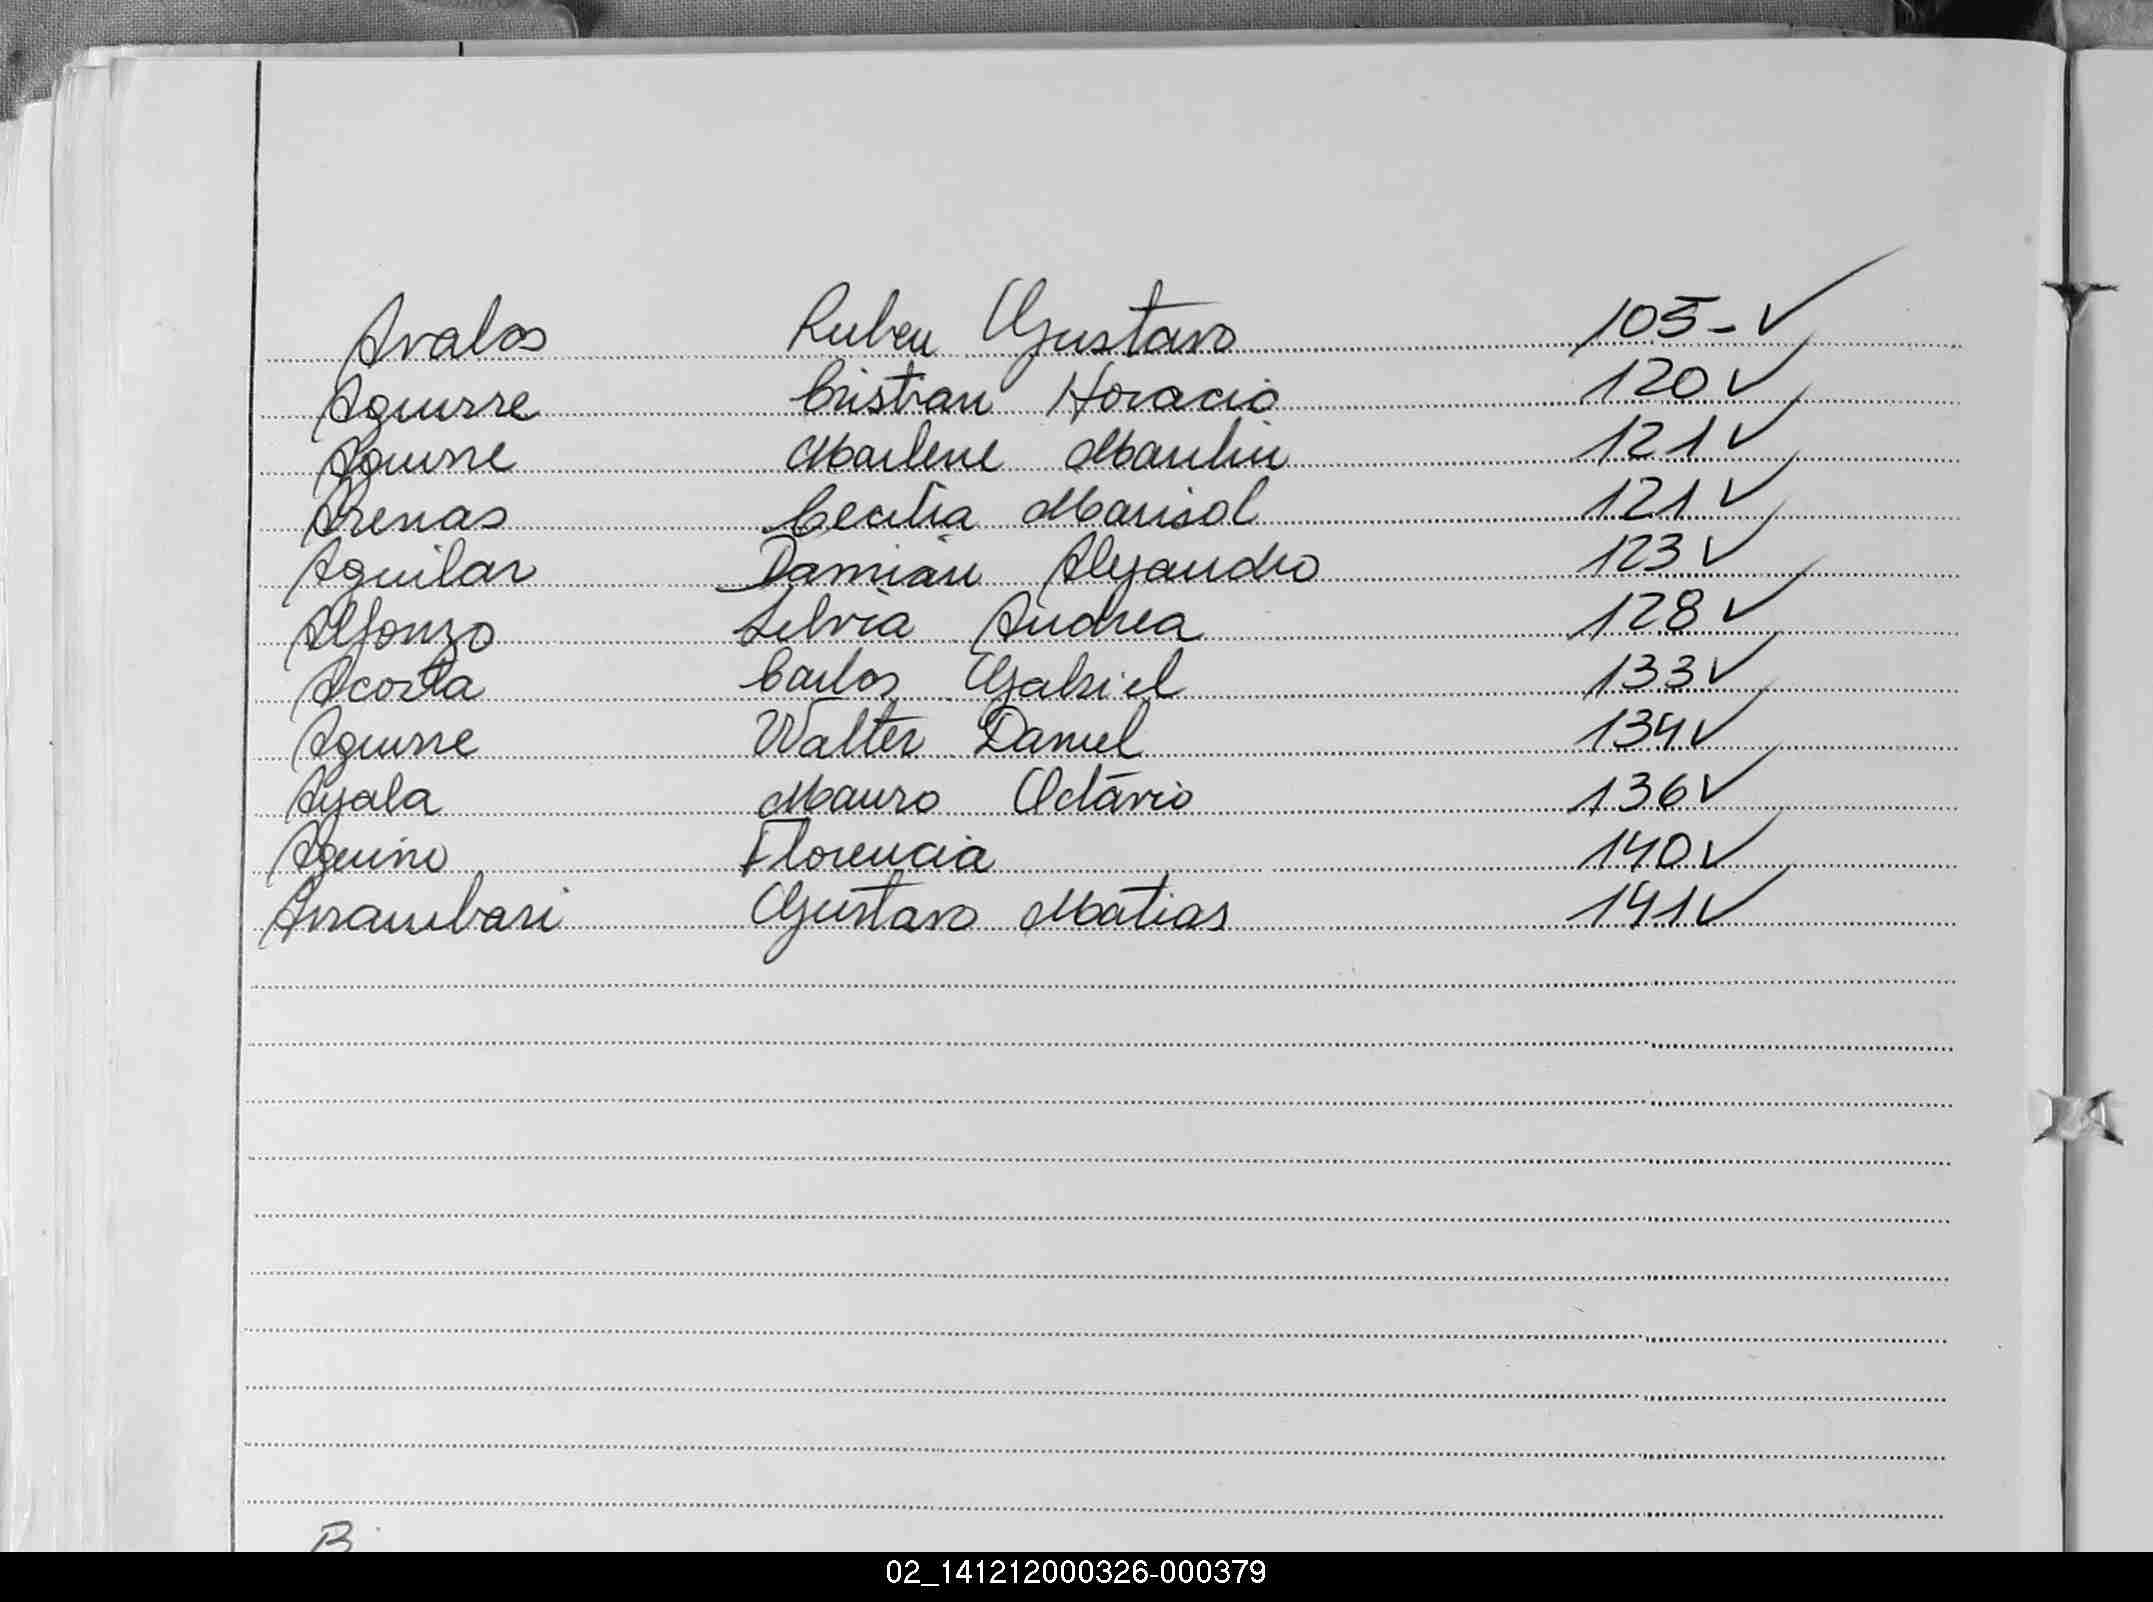 Avalos Ruben Gustavo 105-✓
Aguirre Cristian Horacio 120✓
Aguirre Marlene Marilin 121✓
Arenas Cecilia Marisol 121✓
Aguilar Damián Alejandro 123✓
Alfonzo Silvia Andrea 128✓
Acosta Carlos Gabriel 133✓
Aguirre Walter Daniel 134✓
Ayala Mauro Octavio 136✓
Aquino Florencia 140✓
Arrambari Gustavo Matias 141✓
B
02_141212000326-000379